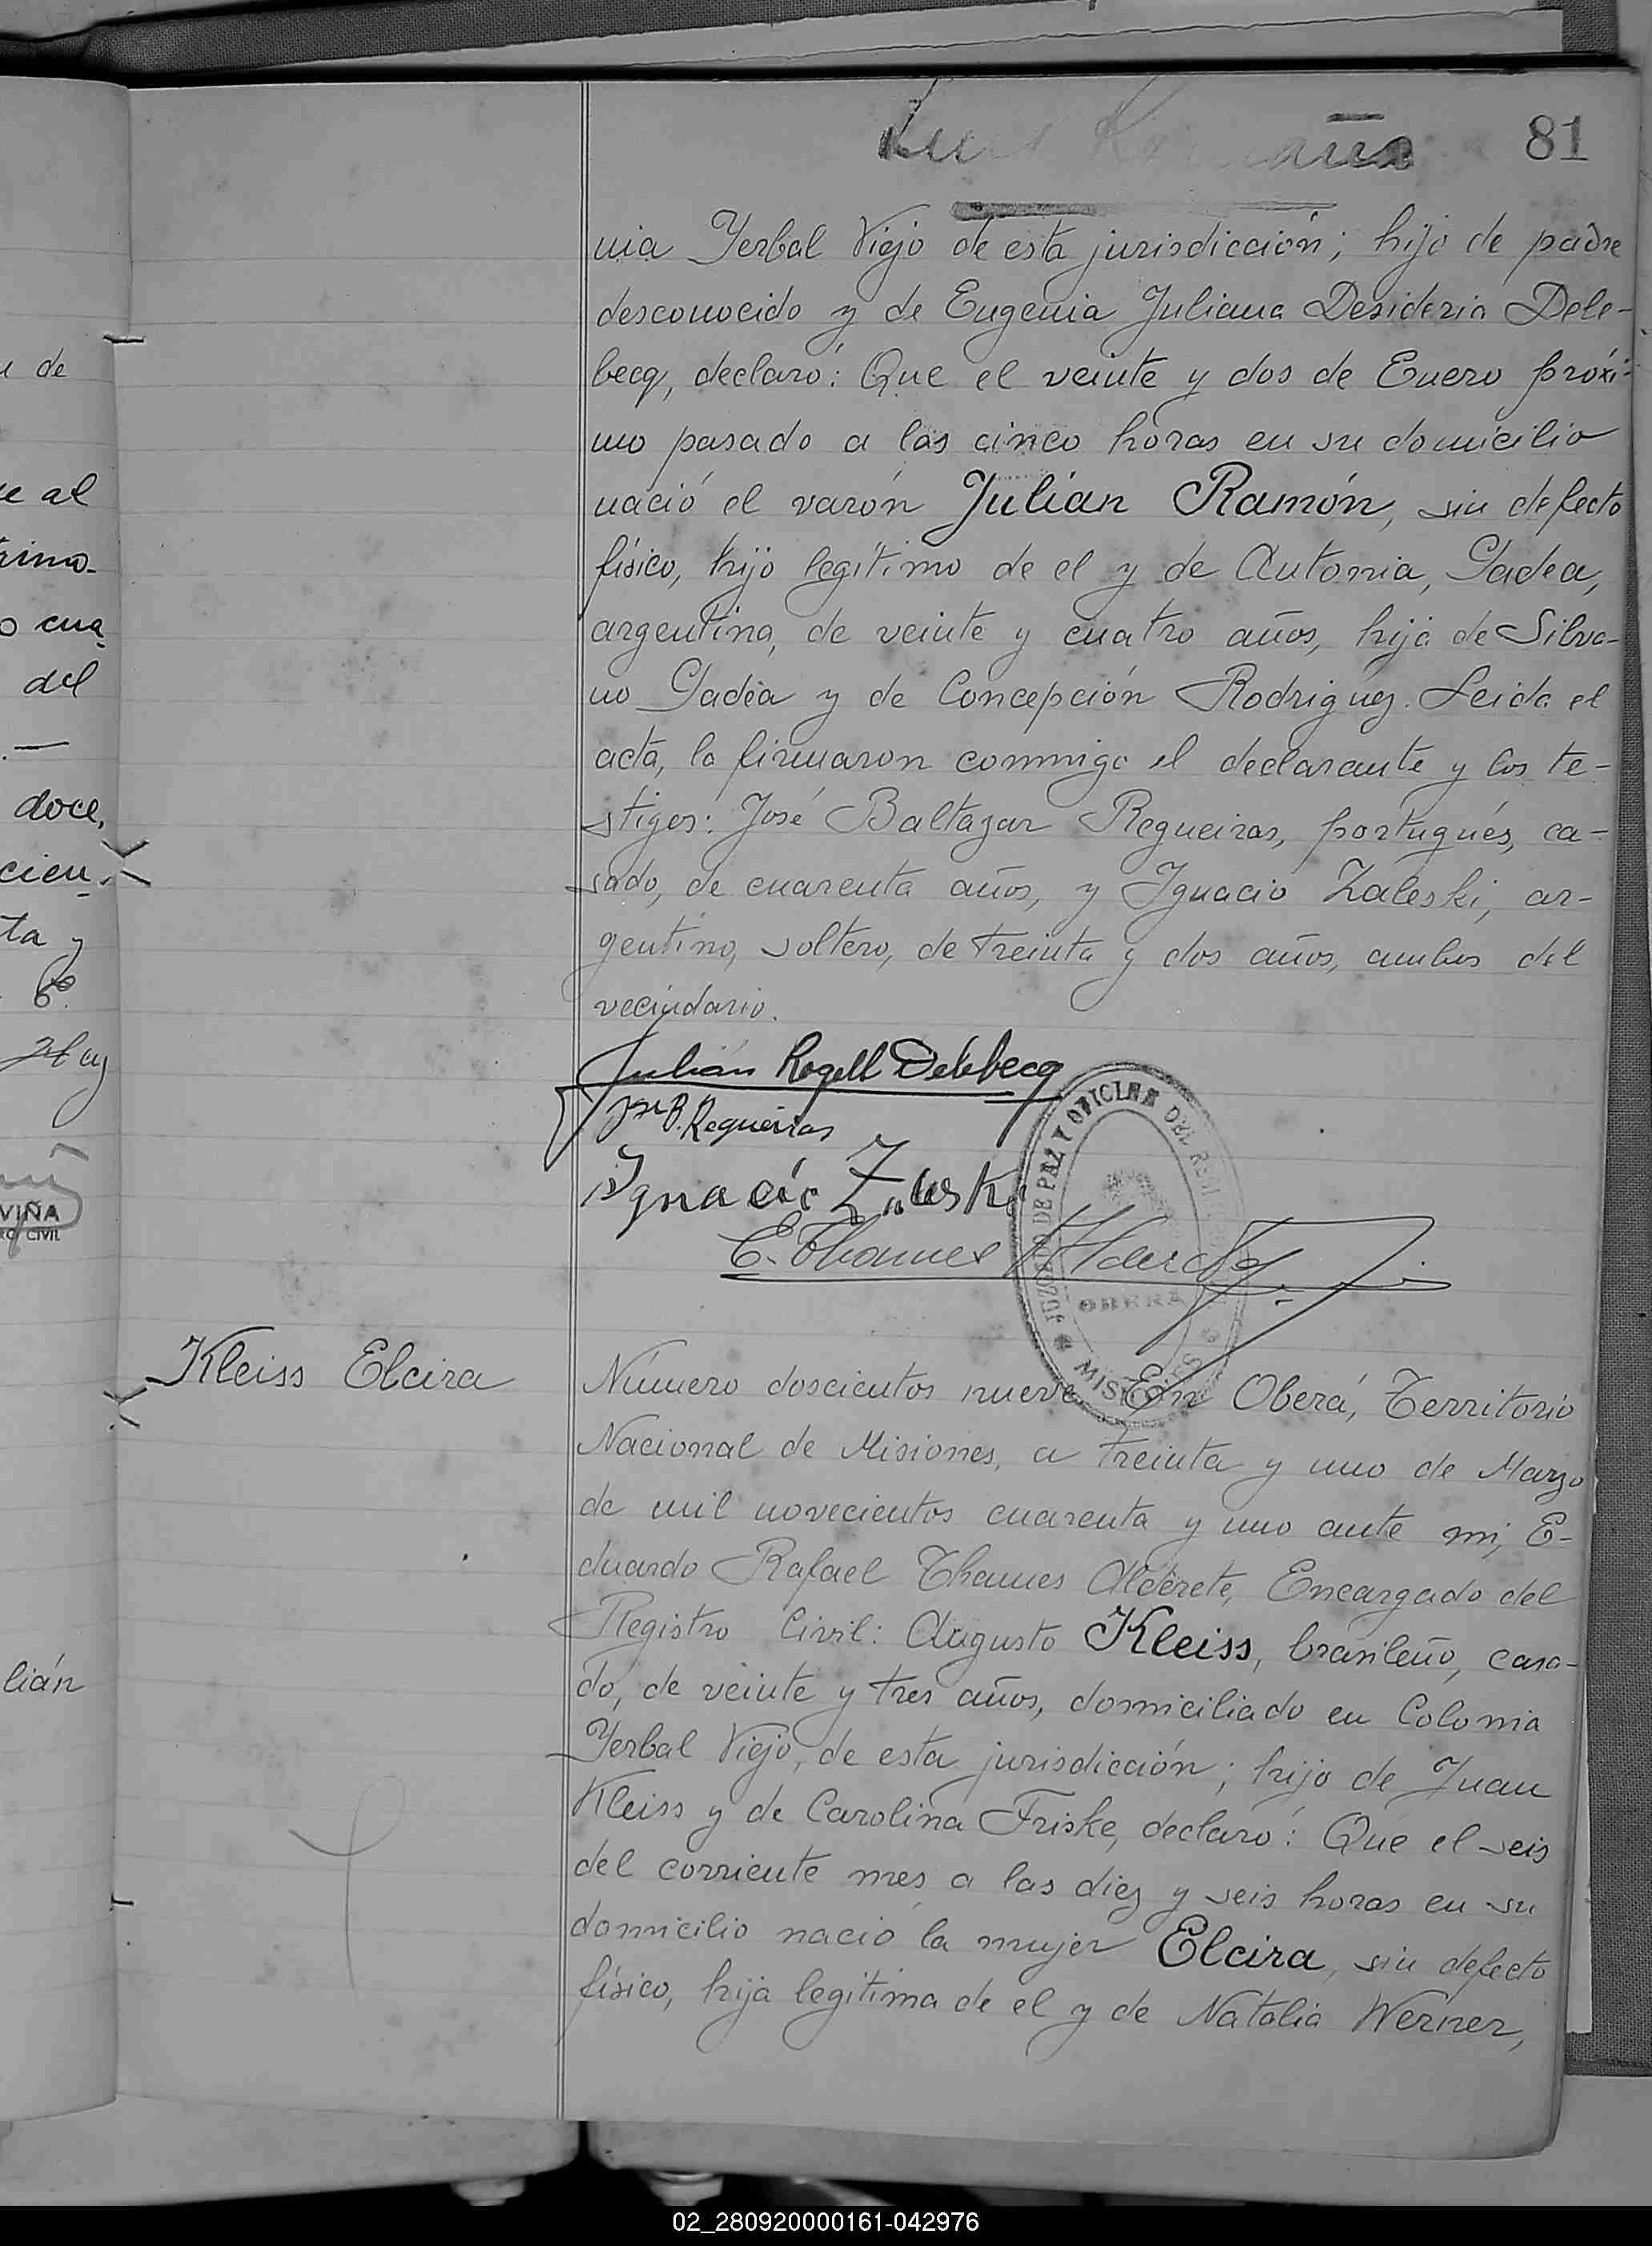 81
nia Yerbal Viejo de esta jurisdicción; hijo de padre
desconocido y de Eugenia Juliana Desideria Dele-
becq, declaró: Que el veinte y dos de Enero próxi-
mo pasado a las cinco horas en su domicilio
nació el varón Julián Ramón, sin defecto
físico, hijo legítimo de el y de Antonia, Gadea,
argentina, de veinte y cuatro años, hija de Silva-
no Gadea y de Concepción Rodriguez. Leida el
acta, la firmaron conmigo el declarante y los te-
stigos: José Baltazar Regueiras, portugués, ca-
sado, de cuarenta años, y Ignacio Zaleski, ar-
gentino, soltero, de treinta y dos años, ambos del
vecindario.
Julián Rogell Delebecq
José B. Regueiras
Ignacio Zaleski
E. Thames Alderete
JUZGADO DE PAZ Y OFICINA DEL
OBERÁ
MISIONES
Kleiss Elcira
Número doscientos nueve En Oberá, Territorio
Nacional de Misiones, a treinta y uno de Marzo
de mil novecientos cuarenta y uno ante mi, E-
duardo Rafael Thames Alderete, Encargado del
Registro Civil: Augusto Kleiss, brasileño, casa-
do, de veinte y tres años, domiciliado en Colonia
Yerbal Viejo, de esta jurisdicción; hijo de Juan
Kleiss y de Carolina Friske, declaró: Que el seis
del corriente mes a las diez y seis horas en su
domicilio nació la mujer Elcira, sin defecto
físico, hija legítima de el y de Natalia Werner,
u de
e al
cua
del
doce,
cien
ta y
VIÑA
CIVIL
lián
02_280920000161-042976